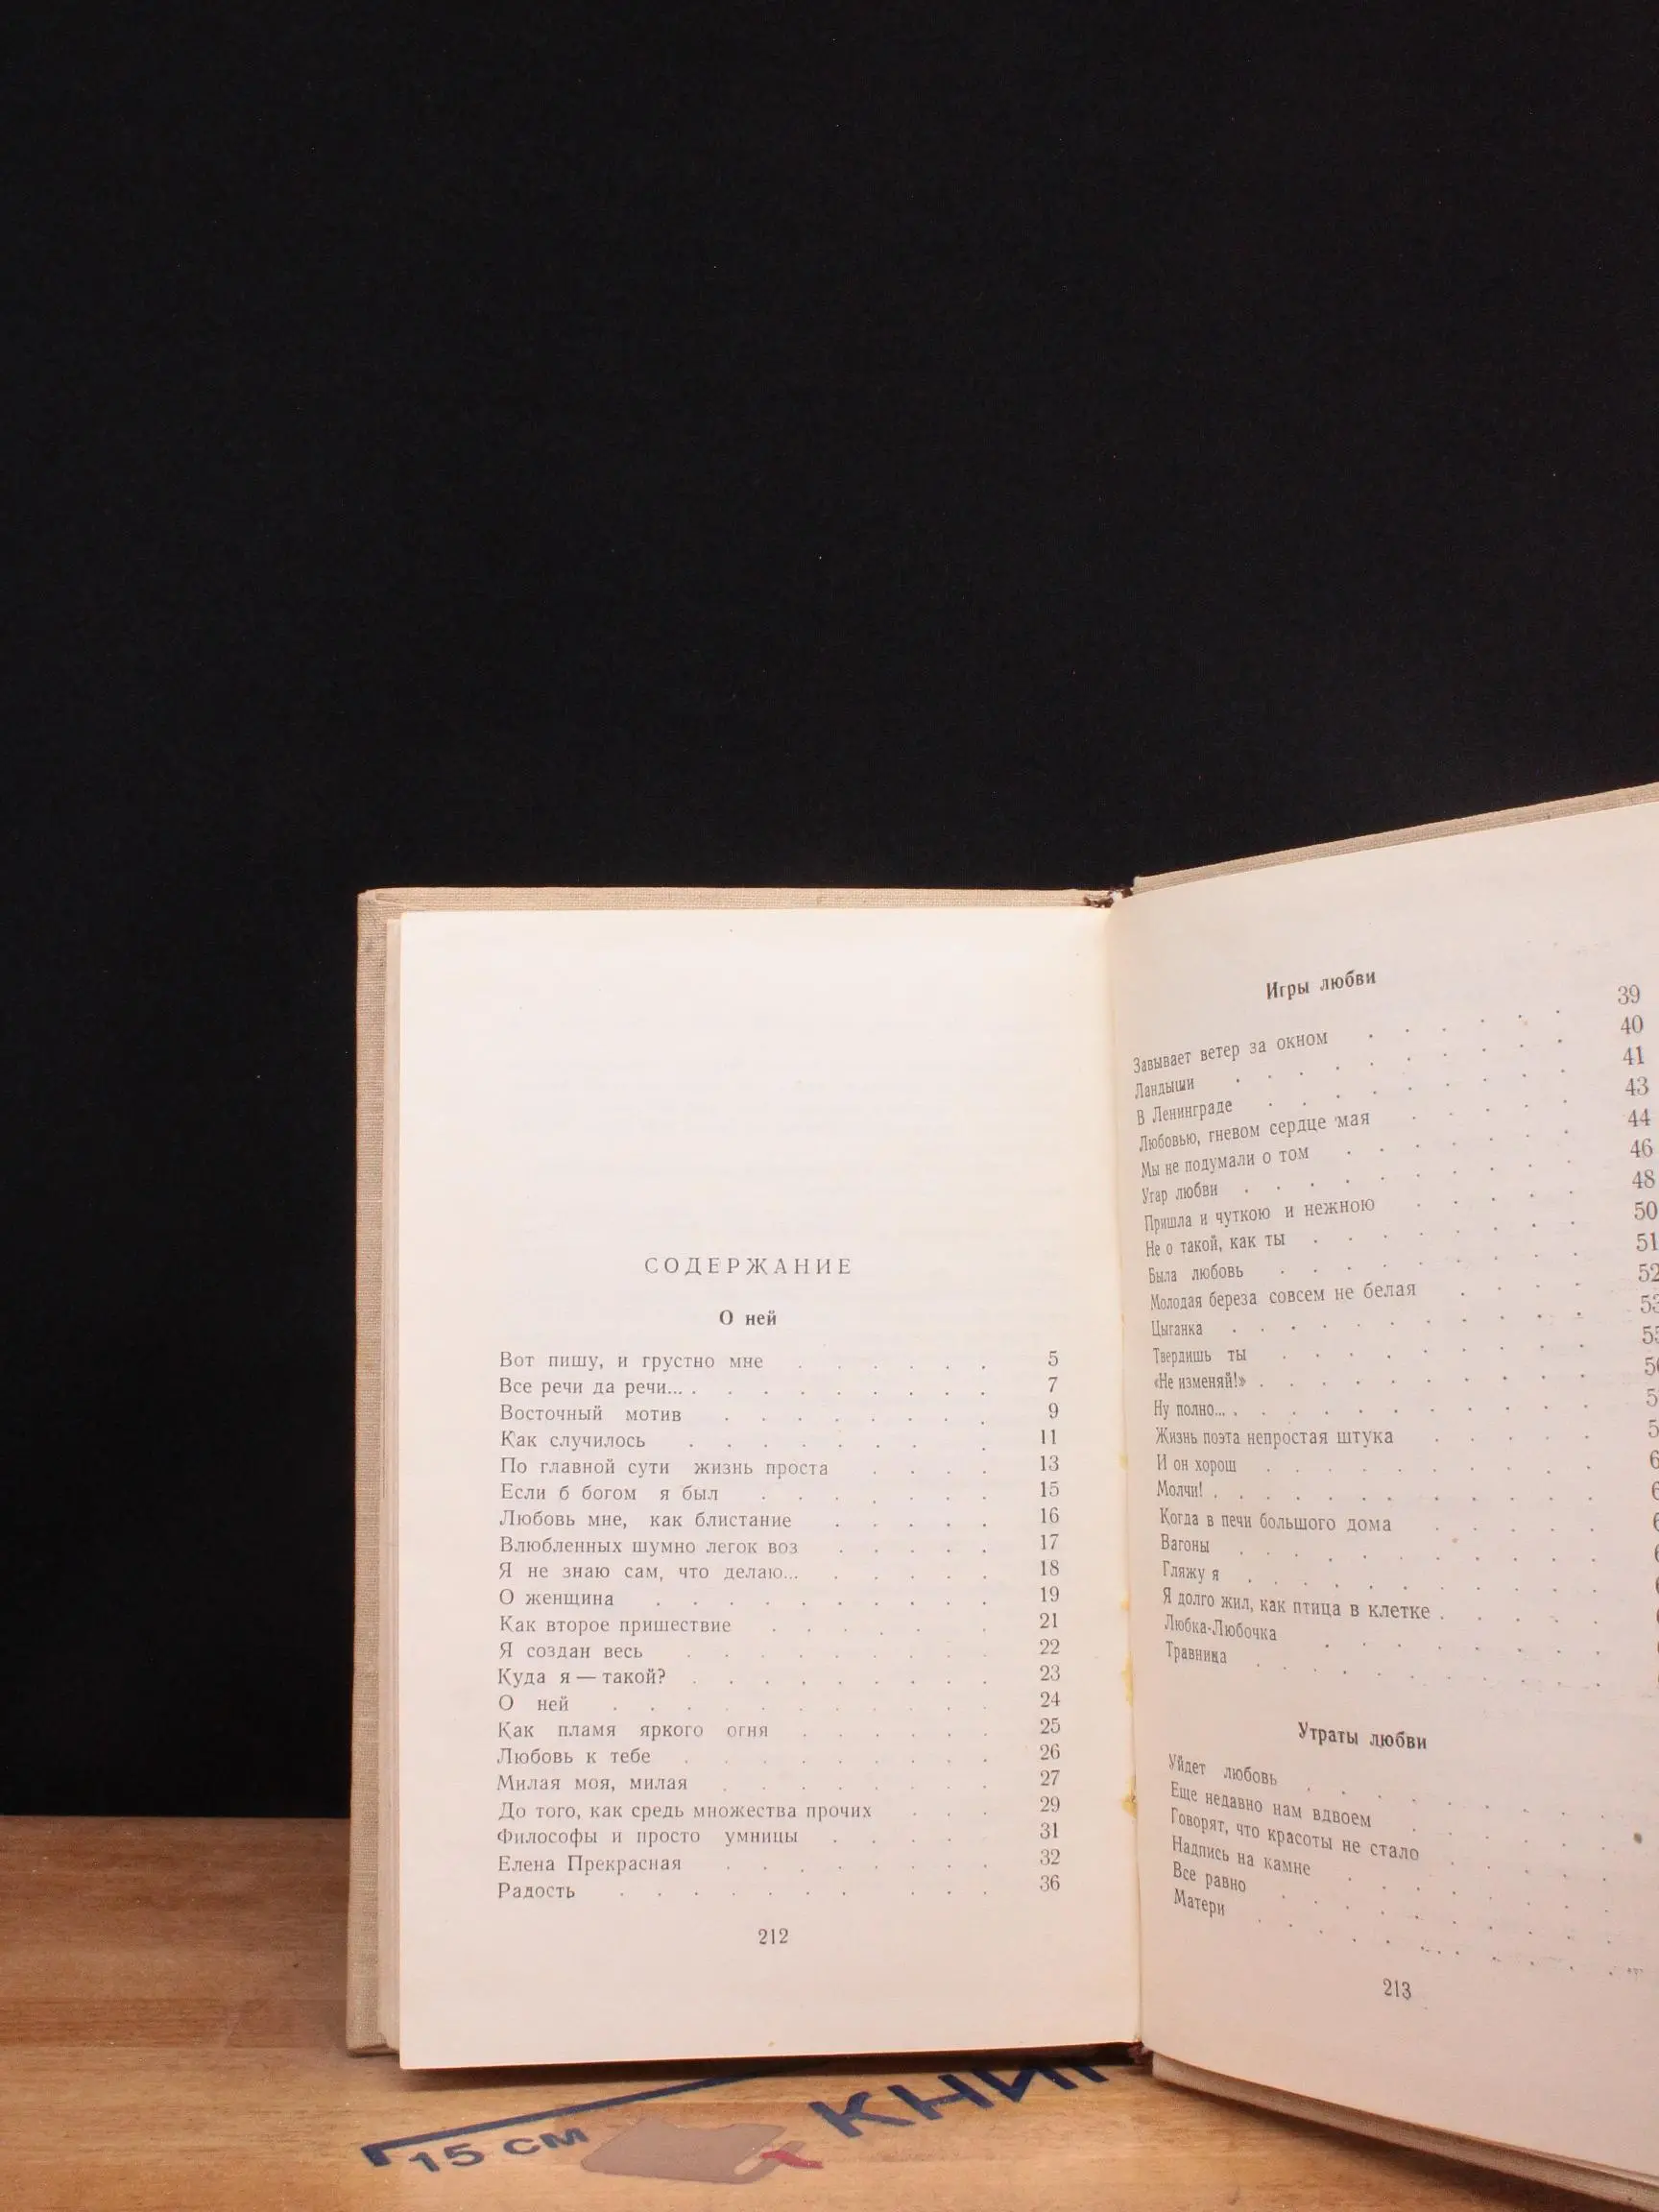 СОДЕРЖАНИЕ
О ней
Вот пишу, и грустно мне . . . . . . 5
Все речи да речи... . . . . . . . . 7
Восточный мотив . . . . . . . 9
Как случилось . . . . . . . . 11
По главной сути жизнь проста . . . . 13
Если б богом я был . . . . . . . 15
Любовь мне, как блистание . . . . . 16
Влюбленных шумно легок воз . . . . . 17
Я не знаю сам, что делаю... . . . . . 18
О женщина . . . . . . . . . 19
Как второе пришествие . . . . . . 21
Я создан весь . . . . . . . . 22
Куда я — такой? . . . . . . . . 23
О ней . . . . . . . . . . 24
Как пламя яркого огня . . . . . . 25
Любовь к тебе . . . . . . . . 26
Милая моя, милая . . . . . . . 27
До того, как средь множества прочих . . . 29
Философы и просто умницы . . . . . 31
Елена Прекрасная . . . . . . . 32
Радость . . . . . . . . . 36
212
Игры любви
Завывает ветер за окном . . . . . . 39
Ландыши . . . . . . . . . 40
В Ленинграде . . . . . . . . 41
Любовью, гневом сердце мая . . . . . 43
Мы не подумали о том . . . . . . 44
Угар любви . . . . . . . . . 46
Пришла и чуткою и нежною . . . . . 48
Не о такой, как ты . . . . . . . 50
Была любовь . . . . . . . . 51
Молодая береза совсем не белая . . . . 52
Цыганка . . . . . . . . . .
Твердишь ты . . . . . . . .
«Не изменяй!» . . . . . . . . .
Ну полно... . . . . . . . . . .
Жизнь поэта непростая штука . . . . .
И он хорош . . . . . . . . .
Молчи! . . . . . . . . . .
Когда в печи большого дома . . . . .
Вагоны . . . . . . . . . .
Гляжу я . . . . . . . . . .
Я долго жил, как птица в клетке . . . . .
Любка-Любочка . . . . . . .
Травница . . . . . . . . .
Утраты любви
Уйдет любовь . . . . . . . .
Еще недавно нам вдвоем . . . . . .
Говорят, что красоты не стало . . . . .
Надпись на камне . . . . . . .
Все равно . . . . . . . . .
Матери . . . . . . . . .
213
15 СМ